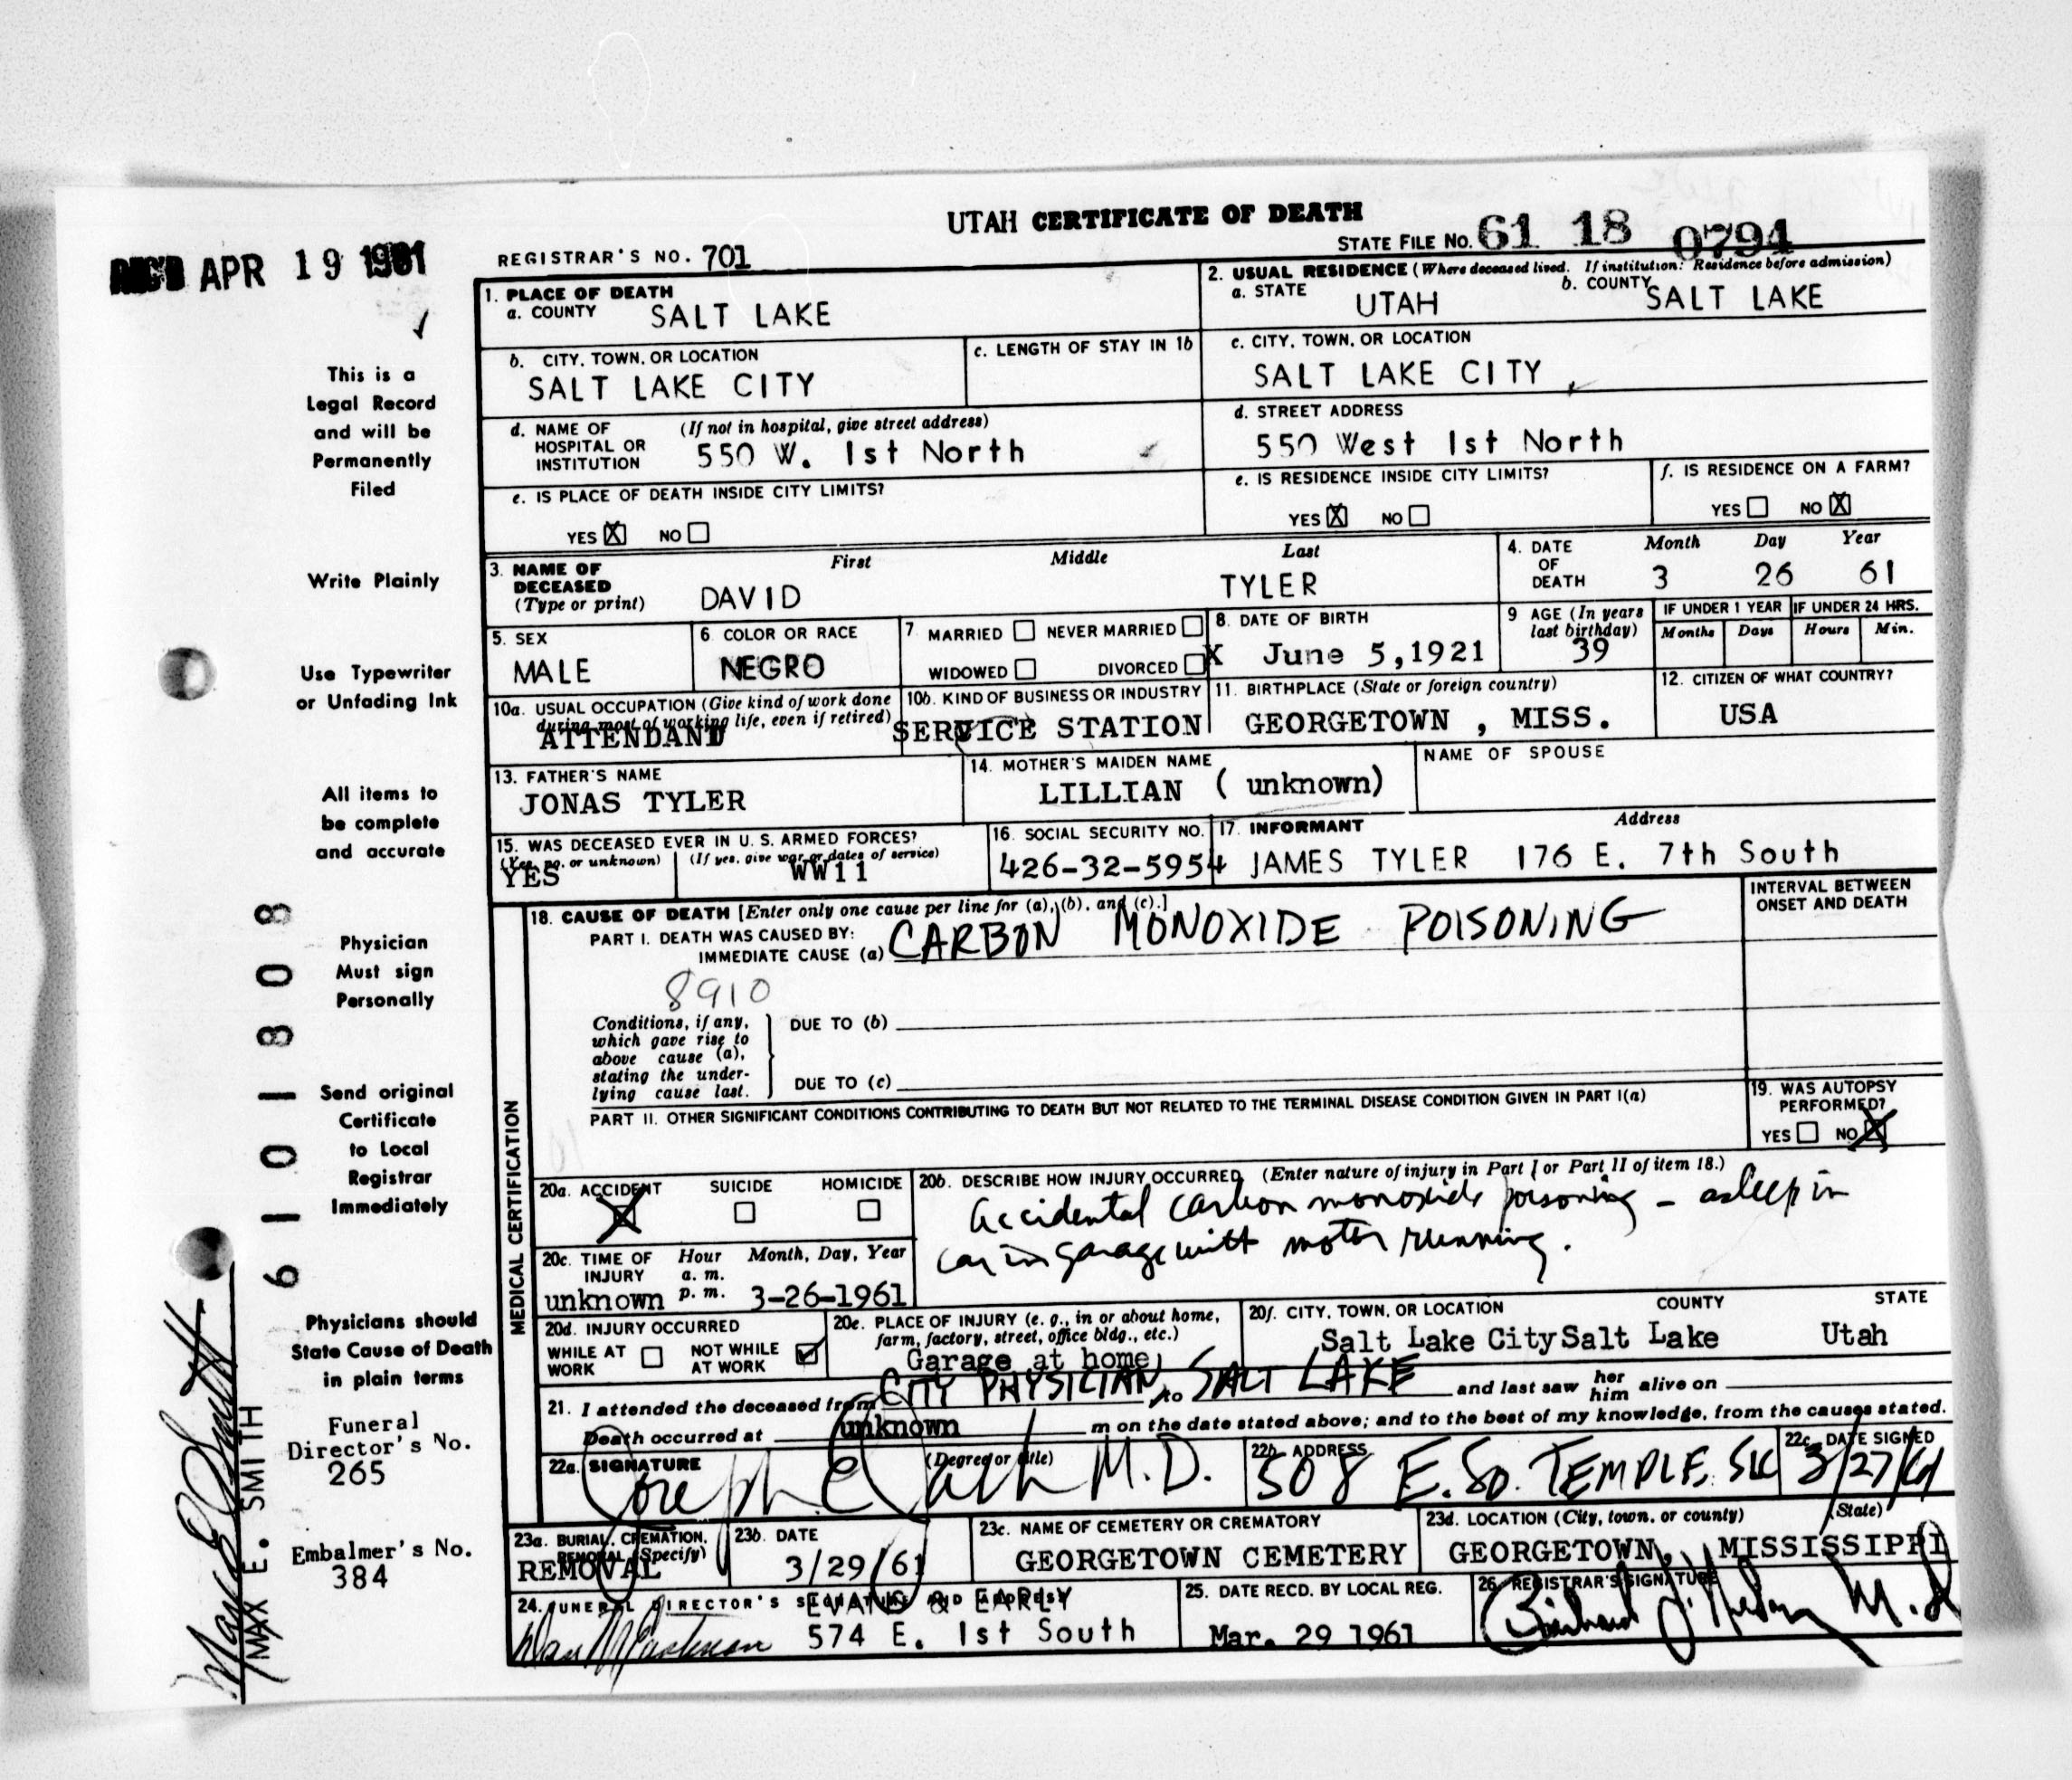 UTAH CERTIFICATE OF DEATH
REC'D APR 19 1961
REGISTRAR'S NO. 701
STATE FILE NO. 61 18 0794
1. PLACE OF DEATH
a. COUNTY SALT LAKE
2. USUAL RESIDENCE (Where deceased lived. If institution: Residence before admission)
a. STATE UTAH b. COUNTY SALT LAKE
b. CITY, TOWN, OR LOCATION
SALT LAKE CITY
c. LENGTH OF STAY IN 1b
c. CITY, TOWN, OR LOCATION
SALT LAKE CITY
d. NAME OF (If not in hospital, give street address)
HOSPITAL OR
INSTITUTION 550 W. 1st North
d. STREET ADDRESS
550 West 1st North
e. IS PLACE OF DEATH INSIDE CITY LIMITS?
YES X NO
e. IS RESIDENCE INSIDE CITY LIMITS?
YES X NO
f. IS RESIDENCE ON A FARM?
YES NO X
3. NAME OF First Middle Last
DECEASED
(Type or print) DAVID TYLER
4. DATE Month Day Year
OF
DEATH 3 26 61
5. SEX
MALE
6. COLOR OR RACE
NEGRO
7. MARRIED NEVER MARRIED
WIDOWED DIVORCED X
8. DATE OF BIRTH
June 5,1921
9 AGE (In years
last birthday)
39
IF UNDER 1 YEAR IF UNDER 24 HRS.
Months Days Hours Min.
10a. USUAL OCCUPATION (Give kind of work done
during most of working life, even if retired)
ATTENDAND
10b. KIND OF BUSINESS OR INDUSTRY
SERVICE STATION
11. BIRTHPLACE (State or foreign country)
GEORGETOWN , MISS.
12. CITIZEN OF WHAT COUNTRY?
USA
13. FATHER'S NAME
JONAS TYLER
14. MOTHER'S MAIDEN NAME
LILLIAN ( unknown)
NAME OF SPOUSE
15. WAS DECEASED EVER IN U. S. ARMED FORCES?
(Yes, no, or unknown) (If yes, give war or dates of service)
YES WW11
16. SOCIAL SECURITY NO.
426-32-5954
17. INFORMANT Address
JAMES TYLER 176 E. 7th South
18. CAUSE OF DEATH [Enter only one cause per line for (a), (b), and (c).]
PART I. DEATH WAS CAUSED BY:
IMMEDIATE CAUSE (a) CARBON MONOXIDE POISONING
INTERVAL BETWEEN
ONSET AND DEATH
8910
Conditions, if any,
which gave rise to
above cause (a),
stating the under-
lying cause last.
DUE TO (b)
DUE TO (c)
PART II. OTHER SIGNIFICANT CONDITIONS CONTRIBUTING TO DEATH BUT NOT RELATED TO THE TERMINAL DISEASE CONDITION GIVEN IN PART I(a)
19. WAS AUTOPSY
PERFORMED?
YES NO X
MEDICAL CERTIFICATION
20a. ACCIDENT SUICIDE HOMICIDE
X
20b. DESCRIBE HOW INJURY OCCURRED. (Enter nature of injury in Part I or Part II of item 18.)
Accidental carbon monoxide poisoning - asleep in
car in garage with motor running.
20c. TIME OF Hour Month, Day, Year
INJURY a. m.
unknown p. m. 3-26-1961
20d. INJURY OCCURRED
WHILE AT NOT WHILE
WORK AT WORK
20e. PLACE OF INJURY (e. g., in or about home,
farm, factory, street, office bldg., etc.)
Garage at home
20f. CITY, TOWN, OR LOCATION COUNTY STATE
Salt Lake City Salt Lake Utah
21. I attended the deceased from CITY PHYSICIAN, to SALT LAKE and last saw her him alive on
Death occurred at unknown m on the date stated above; and to the best of my knowledge, from the causes stated.
22a. SIGNATURE (Degree or title)
Joseph M.D.
22b. ADDRESS
508 E. SO. TEMPLE, SLC
22c. DATE SIGNED
3/27/61
23a. BURIAL, CREMATION,
REMOVAL (Specify)
REMOVAL
23b. DATE
3/29/61
23c. NAME OF CEMETERY OR CREMATORY
GEORGETOWN CEMETERY
23d. LOCATION (City, town, or county) (State)
GEORGETOWN, MISSISSIPPI
24. FUNERAL DIRECTOR'S SIGNATURE AND ADDRESS
EVANS & EARLY
574 E. 1st South
25. DATE RECD. BY LOCAL REG.
Mar. 29 1961
26. REGISTRAR'S SIGNATURE
M.D
This is a
Legal Record
and will be
Permanently
Filed
Write Plainly
Use Typewriter
or Unfading Ink
All items to
be complete
and accurate
Physician
Must sign
Personally
Send original
Certificate
to Local
Registrar
Immediately
Physicians should
State Cause of Death
in plain terms
Funeral
Director's No.
265
Embalmer's No.
384
6 1 0 1 8 0 8
Max E. Smith
MAX E. SMITH